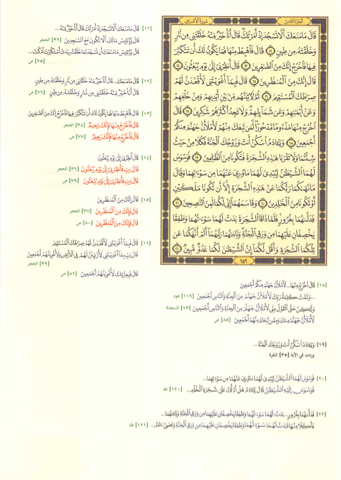 الجزء الثامن
سورة الأعراف
قَالَ مَا مَنَعَكَ أَلَّا تَسْجُدَ إِذْ أَمَرْتُكَ قَالَ أَنَا۠ خَيْرٌ مِّنْهُ خَلَقْتَنِى مِن نَّارٍ
وَخَلَقْتَهُۥ مِن طِينٍ ۝١٢ قَالَ فَٱهْبِطْ مِنْهَا فَمَا يَكُونُ لَكَ أَن تَتَكَبَّرَ
فِيهَا فَٱخْرُجْ إِنَّكَ مِنَ ٱلصَّٰغِرِينَ ۝١٣ قَالَ أَنظِرْنِىٓ إِلَىٰ يَوْمِ يُبْعَثُونَ ۝١٤
قَالَ إِنَّكَ مِنَ ٱلْمُنظَرِينَ ۝١٥ قَالَ فَبِمَآ أَغْوَيْتَنِى لَأَقْعُدَنَّ لَهُمْ
صِرَٰطَكَ ٱلْمُسْتَقِيمَ ۝١٦ ثُمَّ لَءَاتِيَنَّهُم مِّنۢ بَيْنِ أَيْدِيهِمْ وَمِنْ خَلْفِهِمْ
وَعَنْ أَيْمَٰنِهِمْ وَعَن شَمَآئِلِهِمْ وَلَا تَجِدُ أَكْثَرَهُمْ شَٰكِرِينَ ۝١٧ قَالَ
ٱخْرُجْ مِنْهَا مَذْءُومًا مَّدْحُورًا لَّمَن تَبِعَكَ مِنْهُمْ لَأَمْلَأَنَّ جَهَنَّمَ مِنكُمْ
أَجْمَعِينَ ۝١٨ وَيَٰٓـَٔادَمُ ٱسْكُنْ أَنتَ وَزَوْجُكَ ٱلْجَنَّةَ فَكُلَا مِنْ حَيْثُ
شِئْتُمَا وَلَا تَقْرَبَا هَٰذِهِ ٱلشَّجَرَةَ فَتَكُونَا مِنَ ٱلظَّٰلِمِينَ ۝١٩ فَوَسْوَسَ
لَهُمَا ٱلشَّيْطَٰنُ لِيُبْدِىَ لَهُمَا مَا وُۥرِىَ عَنْهُمَا مِن سَوْءَٰتِهِمَا وَقَالَ
مَا نَهَىٰكُمَا رَبُّكُمَا عَنْ هَٰذِهِ ٱلشَّجَرَةِ إِلَّآ أَن تَكُونَا مَلَكَيْنِ
أَوْ تَكُونَا مِنَ ٱلْخَٰلِدِينَ ۝٢٠ وَقَاسَمَهُمَآ إِنِّى لَكُمَا لَمِنَ ٱلنَّٰصِحِينَ ۝٢١
فَدَلَّىٰهُمَا بِغُرُورٍ فَلَمَّا ذَاقَا ٱلشَّجَرَةَ بَدَتْ لَهُمَا سَوْءَٰتُهُمَا وَطَفِقَا
يَخْصِفَانِ عَلَيْهِمَا مِن وَرَقِ ٱلْجَنَّةِ وَنَادَىٰهُمَا رَبُّهُمَآ أَلَمْ أَنْهَكُمَا عَن
تِلْكُمَا ٱلشَّجَرَةِ وَأَقُل لَّكُمَآ إِنَّ ٱلشَّيْطَٰنَ لَكُمَا عَدُوٌّ مُّبِينٌ ۝٢٢
١٥٢
(١٢) قَالَ مَا مَنَعَكَ أَلَّا تَسْجُدَ إِذْ أَمَرْتُكَ قَالَ أَنَا۠ خَيْرٌ مِّنْهُ...
قَالَ يَٰٓإِبْلِيسُ مَا لَكَ أَلَّا تَكُونَ مَعَ ٱلسَّٰجِدِينَ [٣٢] الحجر
قَالَ يَٰٓإِبْلِيسُ مَا مَنَعَكَ أَن تَسْجُدَ لِمَا خَلَقْتُ بِيَدَىَّ أَسْتَكْبَرْتَ أَمْ كُنتَ...
[٧٥] ص
قَالَ مَا مَنَعَكَ أَلَّا تَسْجُدَ إِذْ أَمَرْتُكَ قَالَ أَنَا۠ خَيْرٌ مِّنْهُ خَلَقْتَنِى مِن نَّارٍ وَخَلَقْتَهُۥ مِن طِينٍ
قَالَ أَنَا۠ خَيْرٌ مِّنْهُ خَلَقْتَنِى مِن نَّارٍ وَخَلَقْتَهُۥ مِن طِينٍ [٧٦] ص
(١٣) قَالَ فَٱهْبِطْ مِنْهَا فَمَا يَكُونُ لَكَ أَن تَتَكَبَّرَ فِيهَا فَٱخْرُجْ إِنَّكَ مِنَ ٱلصَّٰغِرِينَ
قَالَ فَٱخْرُجْ مِنْهَا فَإِنَّكَ رَجِيمٌ [٣٤] الحجر
قَالَ فَٱخْرُجْ مِنْهَا فَإِنَّكَ رَجِيمٌ [٧٧] ص
(١٤) قَالَ أَنظِرْنِىٓ إِلَىٰ يَوْمِ يُبْعَثُونَ
قَالَ رَبِّ فَأَنظِرْنِىٓ إِلَىٰ يَوْمِ يُبْعَثُونَ [٣٦] الحجر
قَالَ رَبِّ فَأَنظِرْنِىٓ إِلَىٰ يَوْمِ يُبْعَثُونَ [٧٩] ص
(١٥) قَالَ إِنَّكَ مِنَ ٱلْمُنظَرِينَ
قَالَ فَإِنَّكَ مِنَ ٱلْمُنظَرِينَ [٣٧] الحجر
قَالَ فَإِنَّكَ مِنَ ٱلْمُنظَرِينَ [٨٠] ص
(١٦) قَالَ فَبِمَآ أَغْوَيْتَنِى لَأَقْعُدَنَّ لَهُمْ صِرَٰطَكَ ٱلْمُسْتَقِيمَ
قَالَ رَبِّ بِمَآ أَغْوَيْتَنِى لَأُزَيِّنَنَّ لَهُمْ فِى ٱلْأَرْضِ وَلَأُغْوِيَنَّهُمْ أَجْمَعِينَ
[٣٩] الحجر
قَالَ فَبِعِزَّتِكَ لَأُغْوِيَنَّهُمْ أَجْمَعِينَ [٨٢] ص
(١٨) قَالَ ٱخْرُجْ مِنْهَا... لَأَمْلَأَنَّ جَهَنَّمَ مِنكُمْ أَجْمَعِينَ
...وَتَمَّتْ كَلِمَةُ رَبِّكَ لَأَمْلَأَنَّ جَهَنَّمَ مِنَ ٱلْجِنَّةِ وَٱلنَّاسِ أَجْمَعِينَ [١١٩] هود
وَلَٰكِنْ حَقَّ ٱلْقَوْلُ مِنِّى لَأَمْلَأَنَّ جَهَنَّمَ مِنَ ٱلْجِنَّةِ وَٱلنَّاسِ أَجْمَعِينَ [١٣] السجدة
لَأَمْلَأَنَّ جَهَنَّمَ مِنكَ وَمِمَّن تَبِعَكَ مِنْهُمْ أَجْمَعِينَ [٨٥] ص
(١٩) وَيَٰٓـَٔادَمُ ٱسْكُنْ أَنتَ وَزَوْجُكَ ٱلْجَنَّةَ...
وردت في الآية [٣٥] البقرة
(٢٠) فَوَسْوَسَ لَهُمَا ٱلشَّيْطَٰنُ لِيُبْدِىَ لَهُمَا مَا وُۥرِىَ عَنْهُمَا مِن سَوْءَٰتِهِمَا...
فَوَسْوَسَ إِلَيْهِ ٱلشَّيْطَٰنُ قَالَ يَٰٓـَٔادَمُ هَلْ أَدُلُّكَ عَلَىٰ شَجَرَةِ ٱلْخُلْدِ... [١٢٠] طه
(٢٢) فَدَلَّىٰهُمَا بِغُرُورٍ... بَدَتْ لَهُمَا سَوْءَٰتُهُمَا وَطَفِقَا يَخْصِفَانِ عَلَيْهِمَا مِن وَرَقِ ٱلْجَنَّةِ وَنَادَىٰهُمَا...
فَأَكَلَا مِنْهَا فَبَدَتْ لَهُمَا سَوْءَٰتُهُمَا وَطَفِقَا يَخْصِفَانِ عَلَيْهِمَا مِن وَرَقِ ٱلْجَنَّةِ وَعَصَىٰٓ ءَادَمُ... [١٢١] طه